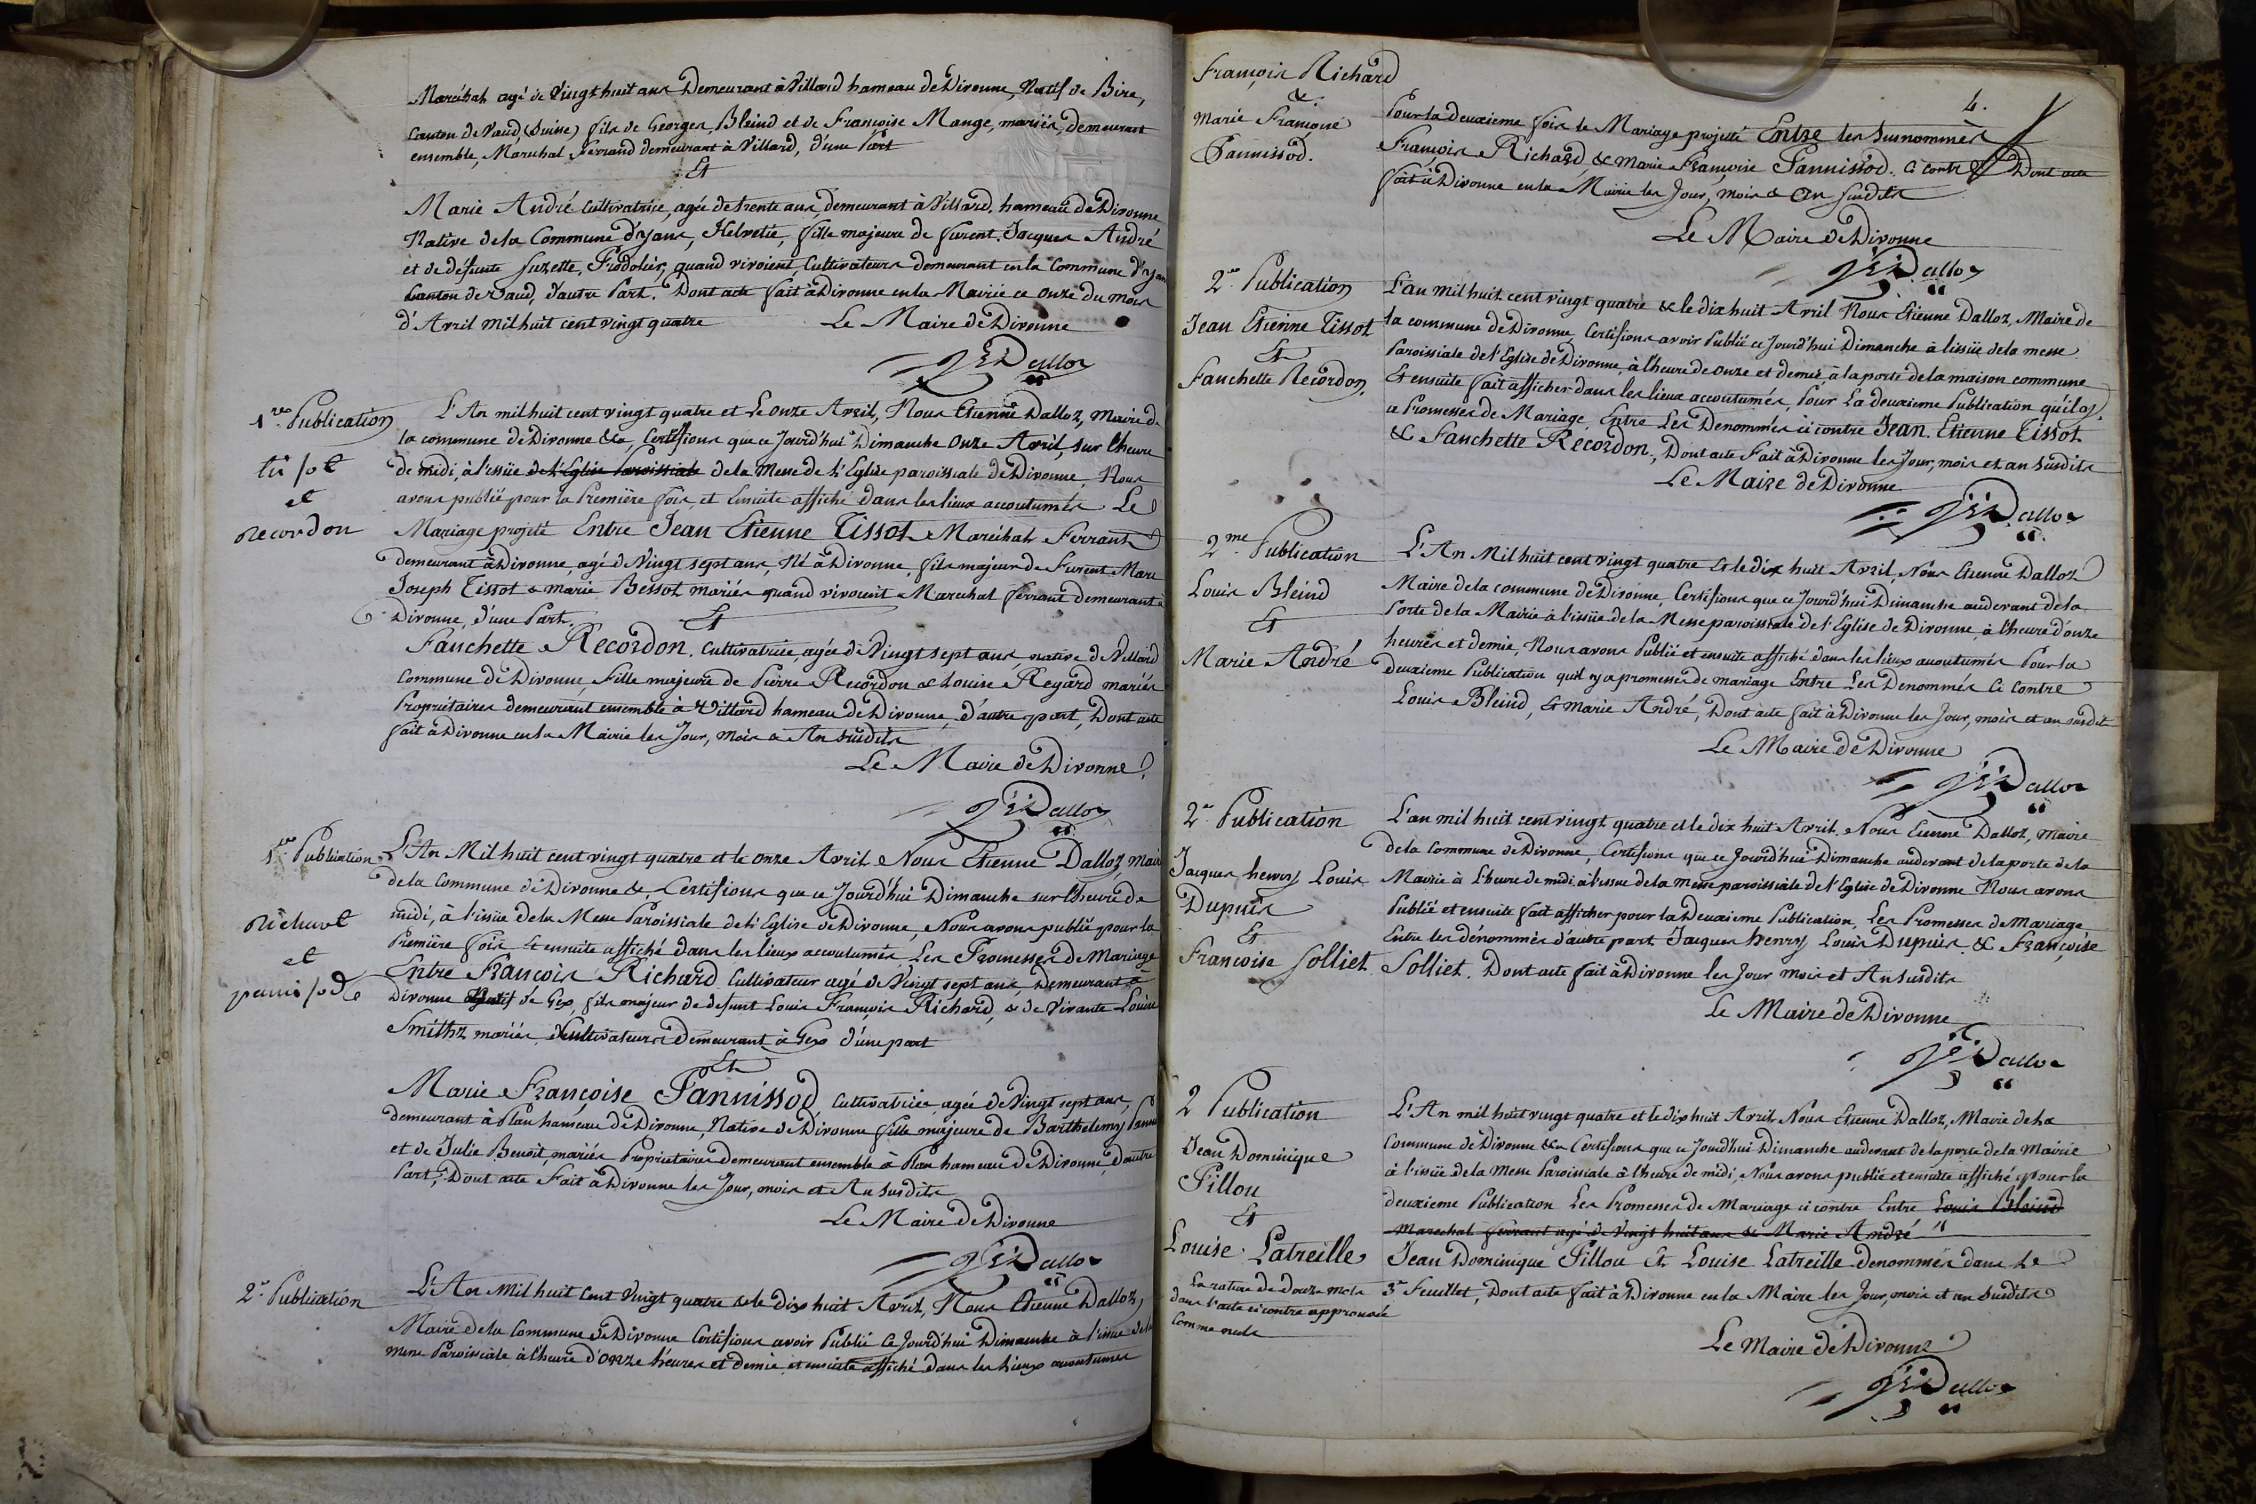 Maréchal agé de Vingt huit ans Demeurant à Villard hameau de Divonne, Natif de Bire,
Canton de Vaud (Suisse) fils de Georges Bleind et de Françoise Mange, mariés, demeurant
ensemble, Marechal ferrand demeurant à Villard, d'une Part
Et
Marie André Cultivatrice, agée de trente ans, demeurant à Villard, hameau de Divonne
Native de la Commune d'yans, Helvetie, fille majeure de furent Jacques André
et de défunte Suzette, quand vivoient, Cultivateurs demeurant en la Commune d'yans
Canton de Vaud, d'autre Part. Dont acte fait à Divonne en la Mairie ce onze du mois
d'Avril mil huit cent vingt quatre Le Maire de Divonne
JEDalloz
1re Publication
tissot
et
recordon
L'An mil huit cent vingt quatre et Le onze Avril, Nous Etienne Dalloz, Maire de
la commune de Divonne &a, Certifions que ce Jourd'hui Dimanche onze Avril, sur l'heure
de midi, à l'issüe de l'Eglise Paroissiale de la Messe de l'Eglise paroissiale de Divonne, Nous
avons publié pour la Première fois, et Ensuite affiché dans les lieux accoutumés Le
Mariage projeté Entre Jean Etienne Tissot Maréchal Ferrant
demeurant à Divonne, agé de Vingt sept ans, Né à Divonne, fils majeur de Furent Marc
Joseph Tissot & marie Bessot mariés quand vivoient Marechal ferrant demeurant à
Divonne, d'une Part.
Et
Fanchette Recordon, Cultivatrice, agée de Vingt sept ans, native de Villard
Commune de Divonne, fille majeure de Pierre Recordon & Louise Regard mariés
Propriétaires demeurant ensemble à Villard hameau de Divonne, d'autre part, Dont acte
fait à Divonne en la Mairie les Jour, Mois & An susdits
Le Maire de Divonne
JEDalloz
1re Publication
richard
et
panissod
L'An Mil huit cent vingt quatre et le onze Avril Nous Etienne Dalloz, Maire
de la Commune de Divonne &, Certifions que ce Jourd'hui Dimanche sur l'heure de
midi, à l'issüe de la Messe Paroissiale de l'Eglise de Divonne, Nous avons publié pour la
Première fois Et ensuite affiché dans les lieux accoutumés Les Promesses de Mariage
Entre François Richard Cultivateur agé de Vingt sept ans, Demeurant à
Divonne Natif de Gex, fils majeur de defunt Louis François Richard, & de Vivante Louise
Smithz mariés, Cultivateurs Demeurant à Gex d'une part
Et
Marie Françoise Pannissod, Cultivatrice, agée de Vingt sept ans,
demeurant à Plan hameau de Divonne, Native de Divonne fille majeure de Barthelemy Panni
et de Julie Benoit, mariés Propriétaires demeurant ensemble à Plan hameau de Divonne, d'autre
Part, Dont acte Fait à Divonne les Jour, mois et An susdits
Le Maire de Divonne
JEDalloz
2e Publication
L'An Mil huit Cent Vingt quatre & le dix huit Avril, Nous Etienne Dalloz,
Maire de la Commune de Divonne Certifions avoir Publié Ce Jourd'hui Dimanche à l'issue de la
messe Paroissiale à l'heure d'onze heures et demie, et ensuite affiché dans les lieux accoutumés
François Richard
&
Marie Françoise
Pannissod.
4.
Pour la deuxieme fois le Mariage projeté Entre les surnommés
François Richard, & Marie Françoise Pannissod. Ci contre Dont acte
fait à Divonne en la Mairie les Jour, Mois & An susdits
Le Maire de Divonne
JEDalloz
2e Publication
Jean Etienne Tissot
Et
Fanchette Recordon.
L'an mil huit cent vingt quatre & le dix huit Avril Nous Etienne Dalloz, Maire de
la commune de Divonne, Certifions avoir Publié ce Jourd'hui Dimanche à l'issüe de la messe
Paroissiale de l'Eglise de Divonne, à l'heure de onze et demie, à la porte de la maison commune
Et ensuite fait afficher dans les lieux accoutumés, Pour La deuxieme Publication qu'il y
a Promesses de Mariage Entre Les Denommés ci contre Jean Etienne Tissot
& Fanchette Recordon, Dont acte Fait à Divonne les Jour, mois et an susdits
Le Maire de Divonne
JEDalloz
2me Publication
Louis Bleind
Et
Marie André
L'An Mil huit cent vingt quatre Et le dix huit Avril, Nous Etienne Dalloz
Maire de la commune de Divonne, Certifions que ce Jourd'hui Dimanche au devant de la
Porte de la Mairie à l'issüe de la Messe paroissiale de l'Eglise de Divonne à l'heure d'onze
heures et demie, Nous avons Publié et ensuite affiché dans les lieux accoutumés Pour la
deuxieme Publication qu'il y a promesses de mariage Entre Les Denommés Ci Contre
Louis Bleind, Et Marie André, Dont acte fait à Divonne les Jour, mois et an susdits
Le Maire de Divonne
JEDalloz
2e Publication
Jacques henry Louis
Dupuis
Et
Francoise Solliet
L'an mil huit cent vingt quatre et le dix huit Avril. Nous Etienne Dalloz, Maire
de la Commune de Divonne, Certifions que ce Jourd'hui Dimanche au devant de la porte de la
Mairie à l'heure de midi à l'issue de la Messe paroissiale de l'Eglise de Divonne Nous avons
Publié et ensuite fait afficher pour la Deuxieme Publication, Les Promesses de Mariage
Entre les dénommés d'autre part Jacques henry Louis Dupuis & Françoise
Solliet. Dont acte fait à Divonne les Jour mois et An susdits
Le Maire de Divonne
JEDalloz
2 Publication
Jean Dominique
Pillou
Et
Louise Latreille
La rature de Douze mots
dans l'acte ci contre approuvée
comme nuls
L'An mil huit vingt quatre et le dix huit Avril Nous Etienne Dalloz, Maire de la
Commune de Divonne &a Certifions que ce Jourd'hui Dimanche au devant de la porte de la Mairie
à l'issüe de la Messe Paroissiale à l'heure de midi, Nous avons publié et ensuite affiché pour la
deuxieme Publication Les Promesses de Mariage ci contre Entre Louis Bleind
Marechal ferrant agé de Vingt huit ans & Marie André "
Jean Dominique Pillou Et Louise Latreille denommés dans Le
3e Feuillet, Dont acte fait à Divonne en la Maire les Jour, mois et an Susdits
Le Maire de Divonne
JEDalloz